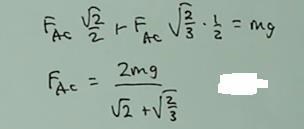 F_AC √2/2 + F_AC √(2/3) · 1/2 = mg
F_AC = 2mg / (√2 + √(2/3))